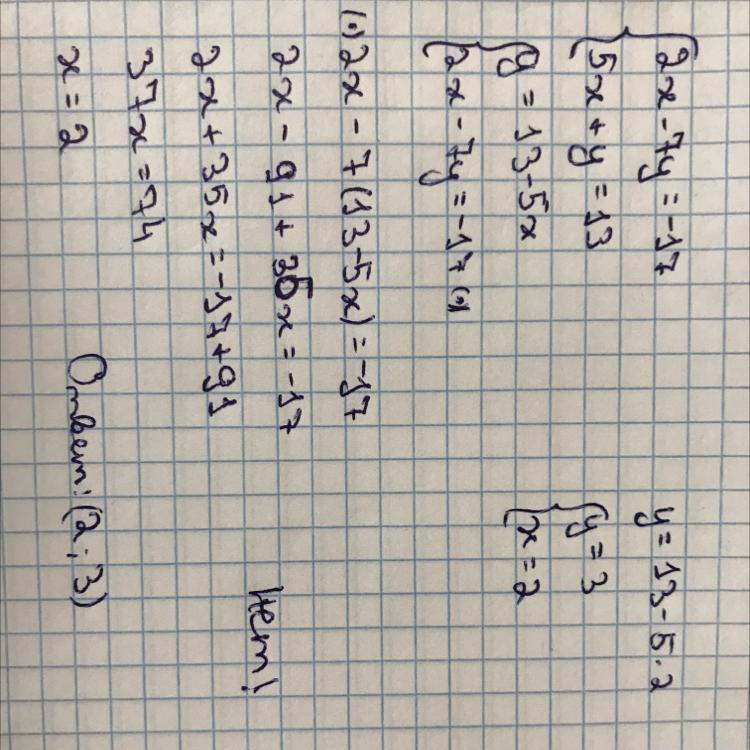 2x - 7y = -17
5x + y = 13
y = 13 - 5x
2x - 7y = -17 (*)
(*) 2x - 7(13 - 5x) = -17
2x - 91 + 35x = -17
2x + 35x = -17 + 91
37x = 74
x = 2
y = 13 - 5 · 2
y = 3
x = 2
Нет!
Ответ: (2; 3)